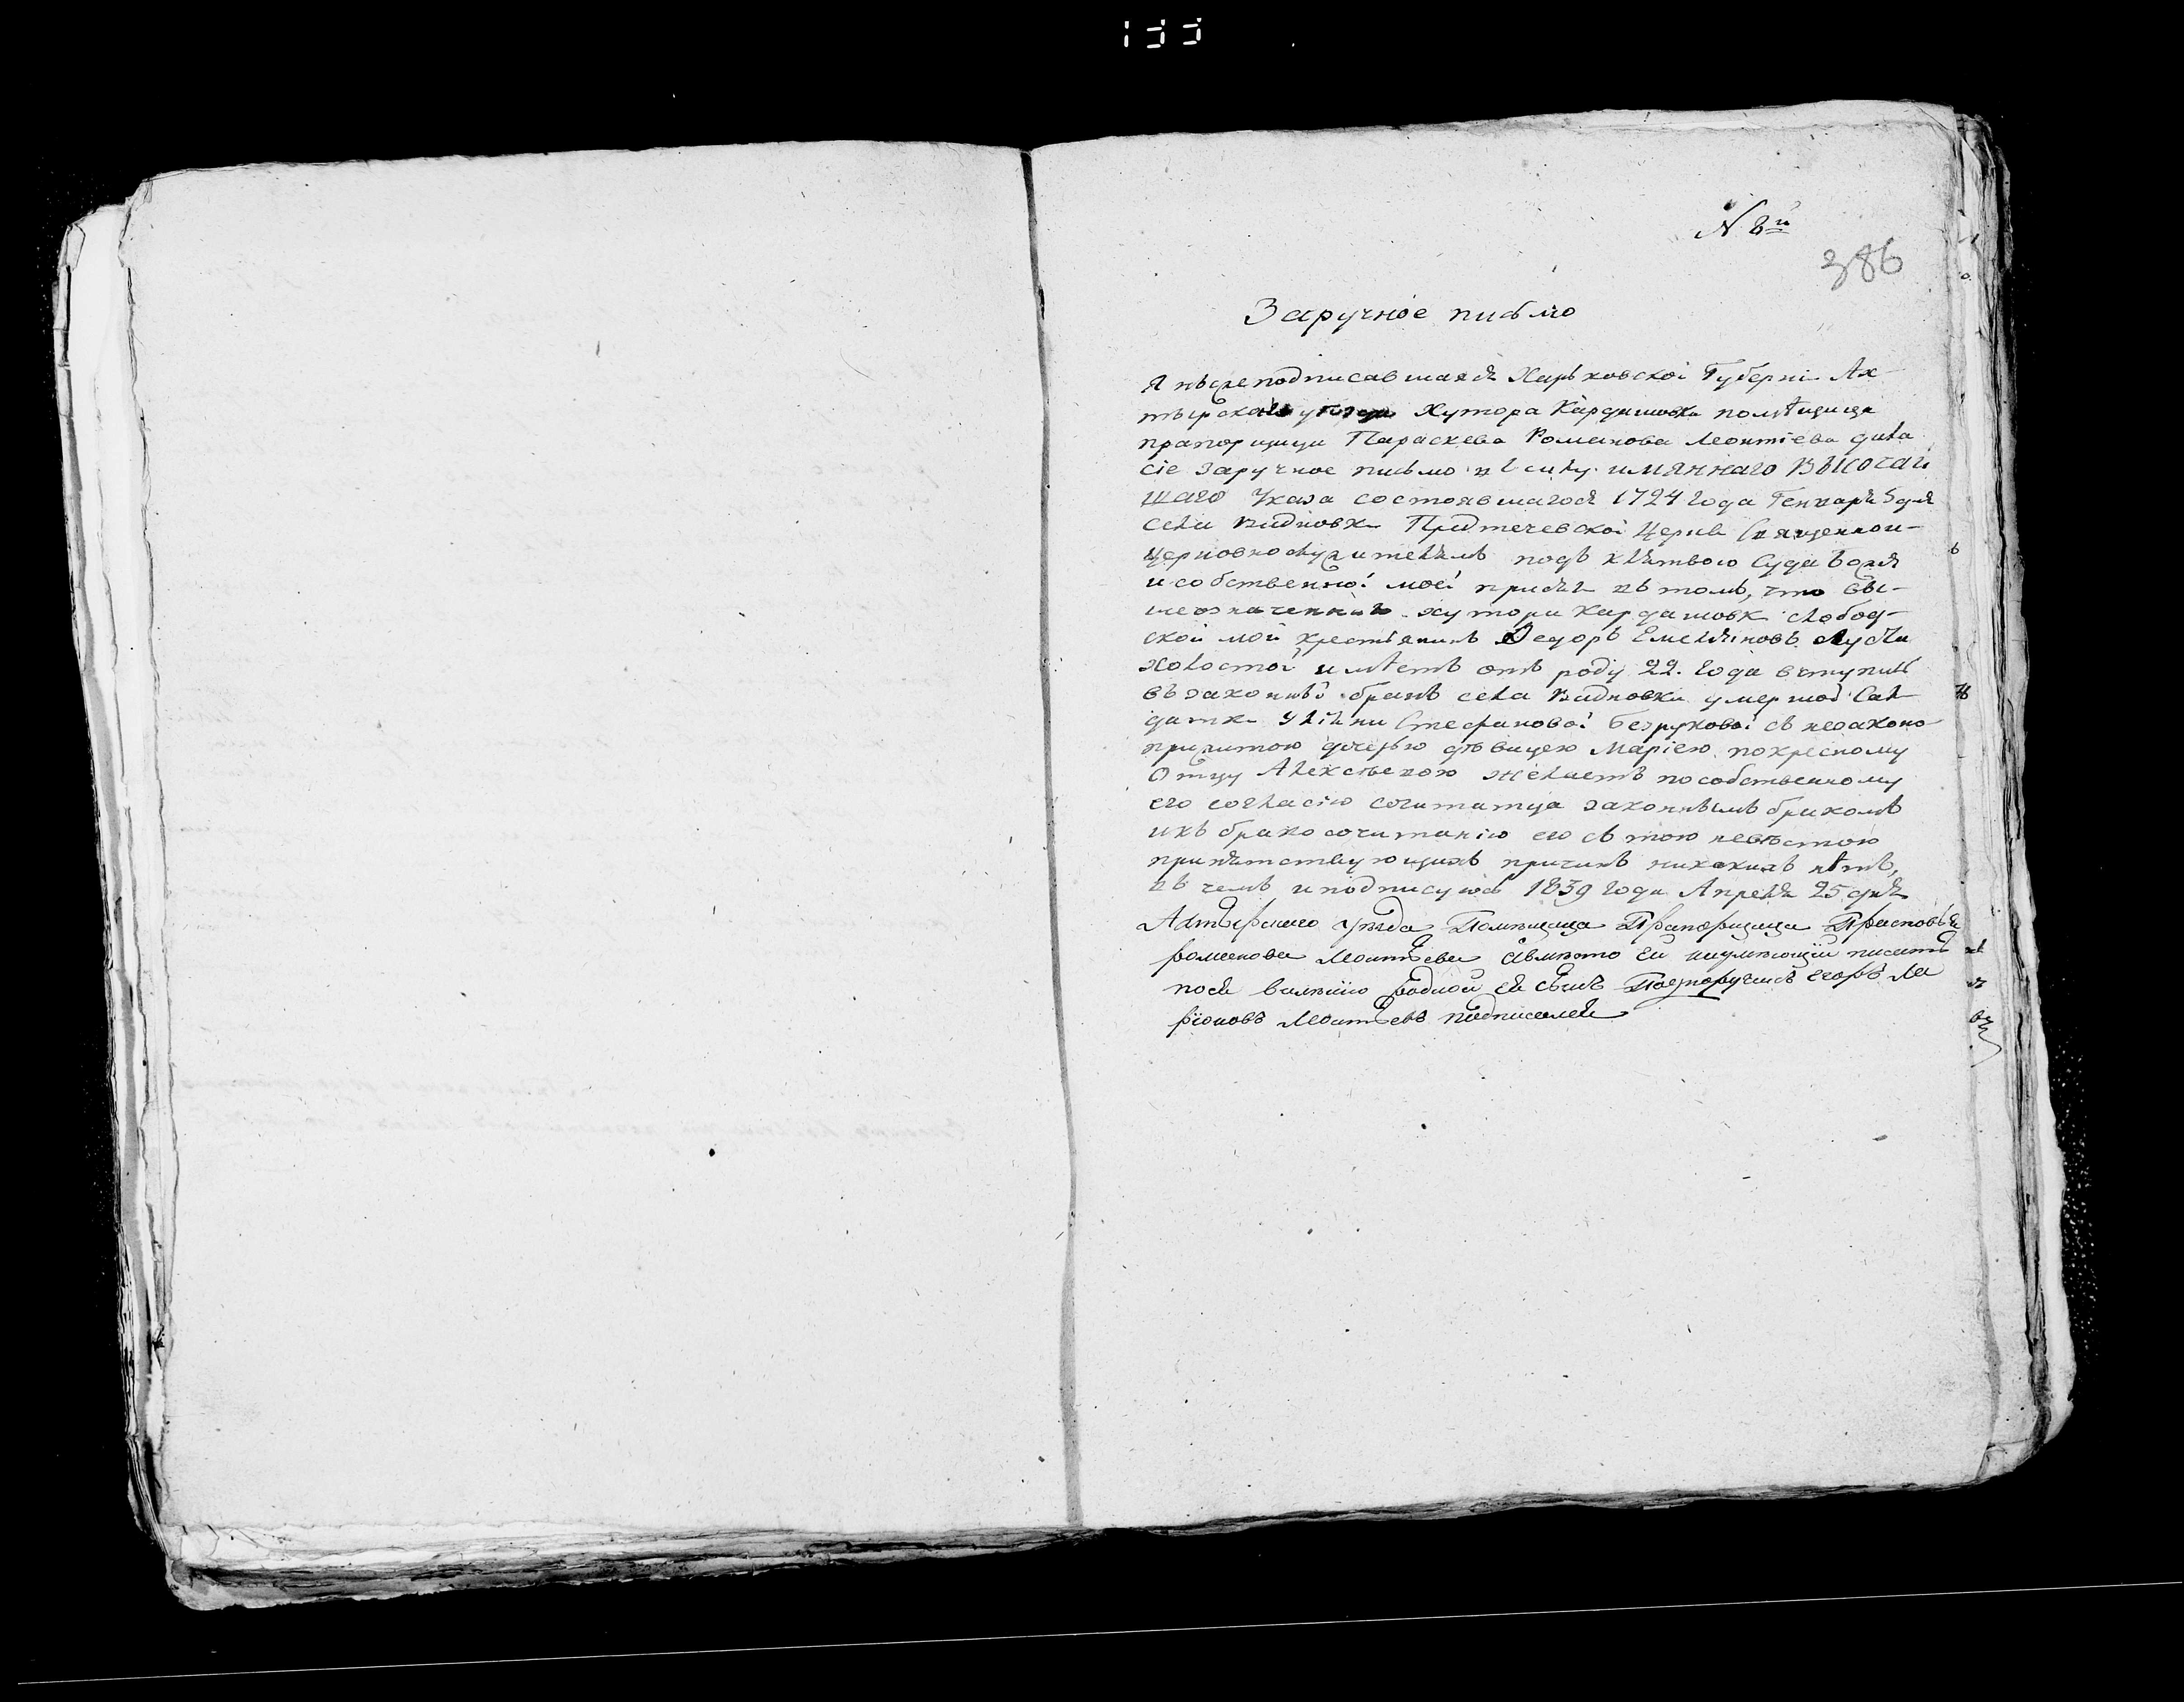 133
N 8й
386
Заручное письмо
Я нижеподписавшаяся Харьковской Губерніи Ах-
тырскаго уѣзда Хутора Кардашовки помѣщица
прапорщица Параскева Романова Леонтіева дала
сіе заручное письмо въ силу имяннаго ВЫСОЧАЙ
ШАГО Указа состоявшагося 1724 года Генваря 5 дня
села Видновки Предтечевской Церкви Священно и-
церковнослужителямъ подъ клятвою Суда Божія
и собственной моей присяги въ томъ, что вы-
шеозначенный хутора Кардашовки слобод-
ской мой крестьянинъ Федоръ Емельяновъ
холостой имѣетъ отъ роду 22. года вступить
въ законный бракъ села Видновки умершой Сал-
датки Уліяни Стефановой Безруковой съ незаконо
прижитою дочерью дѣвицею Маріею по кресному
Отцу Алексѣевою желаетъ по собственному
его согласію сочитатца законнымъ бракомъ
и къ бракосочитанію его съ тою невѣстою
припятствующихъ причинъ никакихъ нѣтъ,
въ чемъ и подписуюсь 1839 года Апреля 25 дня
Ахтырскаго уѣзда Помѣщица Прапорщица Прасковья
романова Леонтьева авмѣсто ей неумѣющій писать
посей велѣнію родной ей сынъ Подпоручикъ Егоръ Ла
ріоновъ Леонтьевъ подписалсе